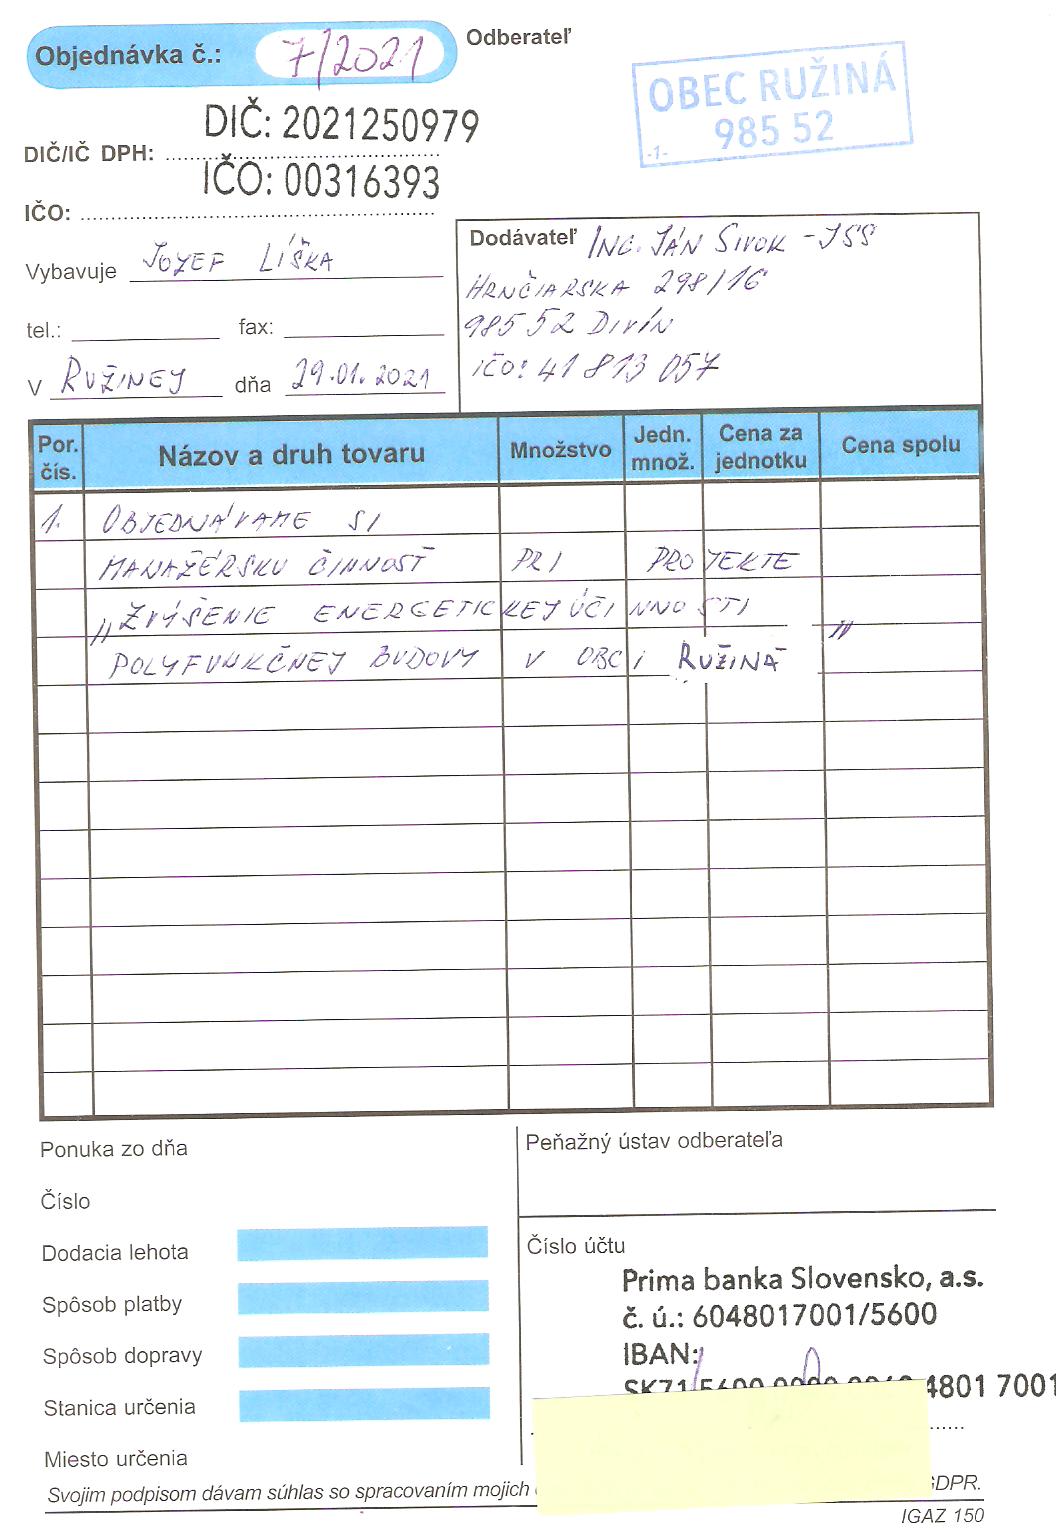 Objednávka č.: 7/2021
Odberateľ
OBEC RUŽINÁ
985 52
-1-
DIČ: 2021250979
DIČ/IČ DPH:
IČO: 00316393
IČO:
Vybavuje JOZEF LÍŠKA
tel.: fax:
V RUŽINEJ dňa 29.01.2021
Dodávateľ ING. JÁN SIVOK - JSS
HRNČIARSKA 298/16
985 52 DIVÍN
IČO: 41 813 057
Por. čís. Názov a druh tovaru Množstvo Jedn. množ. Cena za jednotku Cena spolu
1. OBJEDNÁVAME SI
MANAŽÉRSKU ČINNOSŤ PRI PROJEKTE
„ZVÝŠENIE ENERGETICKEJ ÚČINNOSTI
POLYFUNKČNEJ BUDOVY V OBCI RUŽINÁ "
Ponuka zo dňa
Číslo
Dodacia lehota
Spôsob platby
Spôsob dopravy
Stanica určenia
Miesto určenia
Peňažný ústav odberateľa
Číslo účtu
Prima banka Slovensko, a.s.
č. ú.: 6048017001/5600
IBAN:
SK71 5600 0000 0060 4801 7001
Svojim podpisom dávam súhlas so spracovaním mojich GDPR.
IGAZ 150